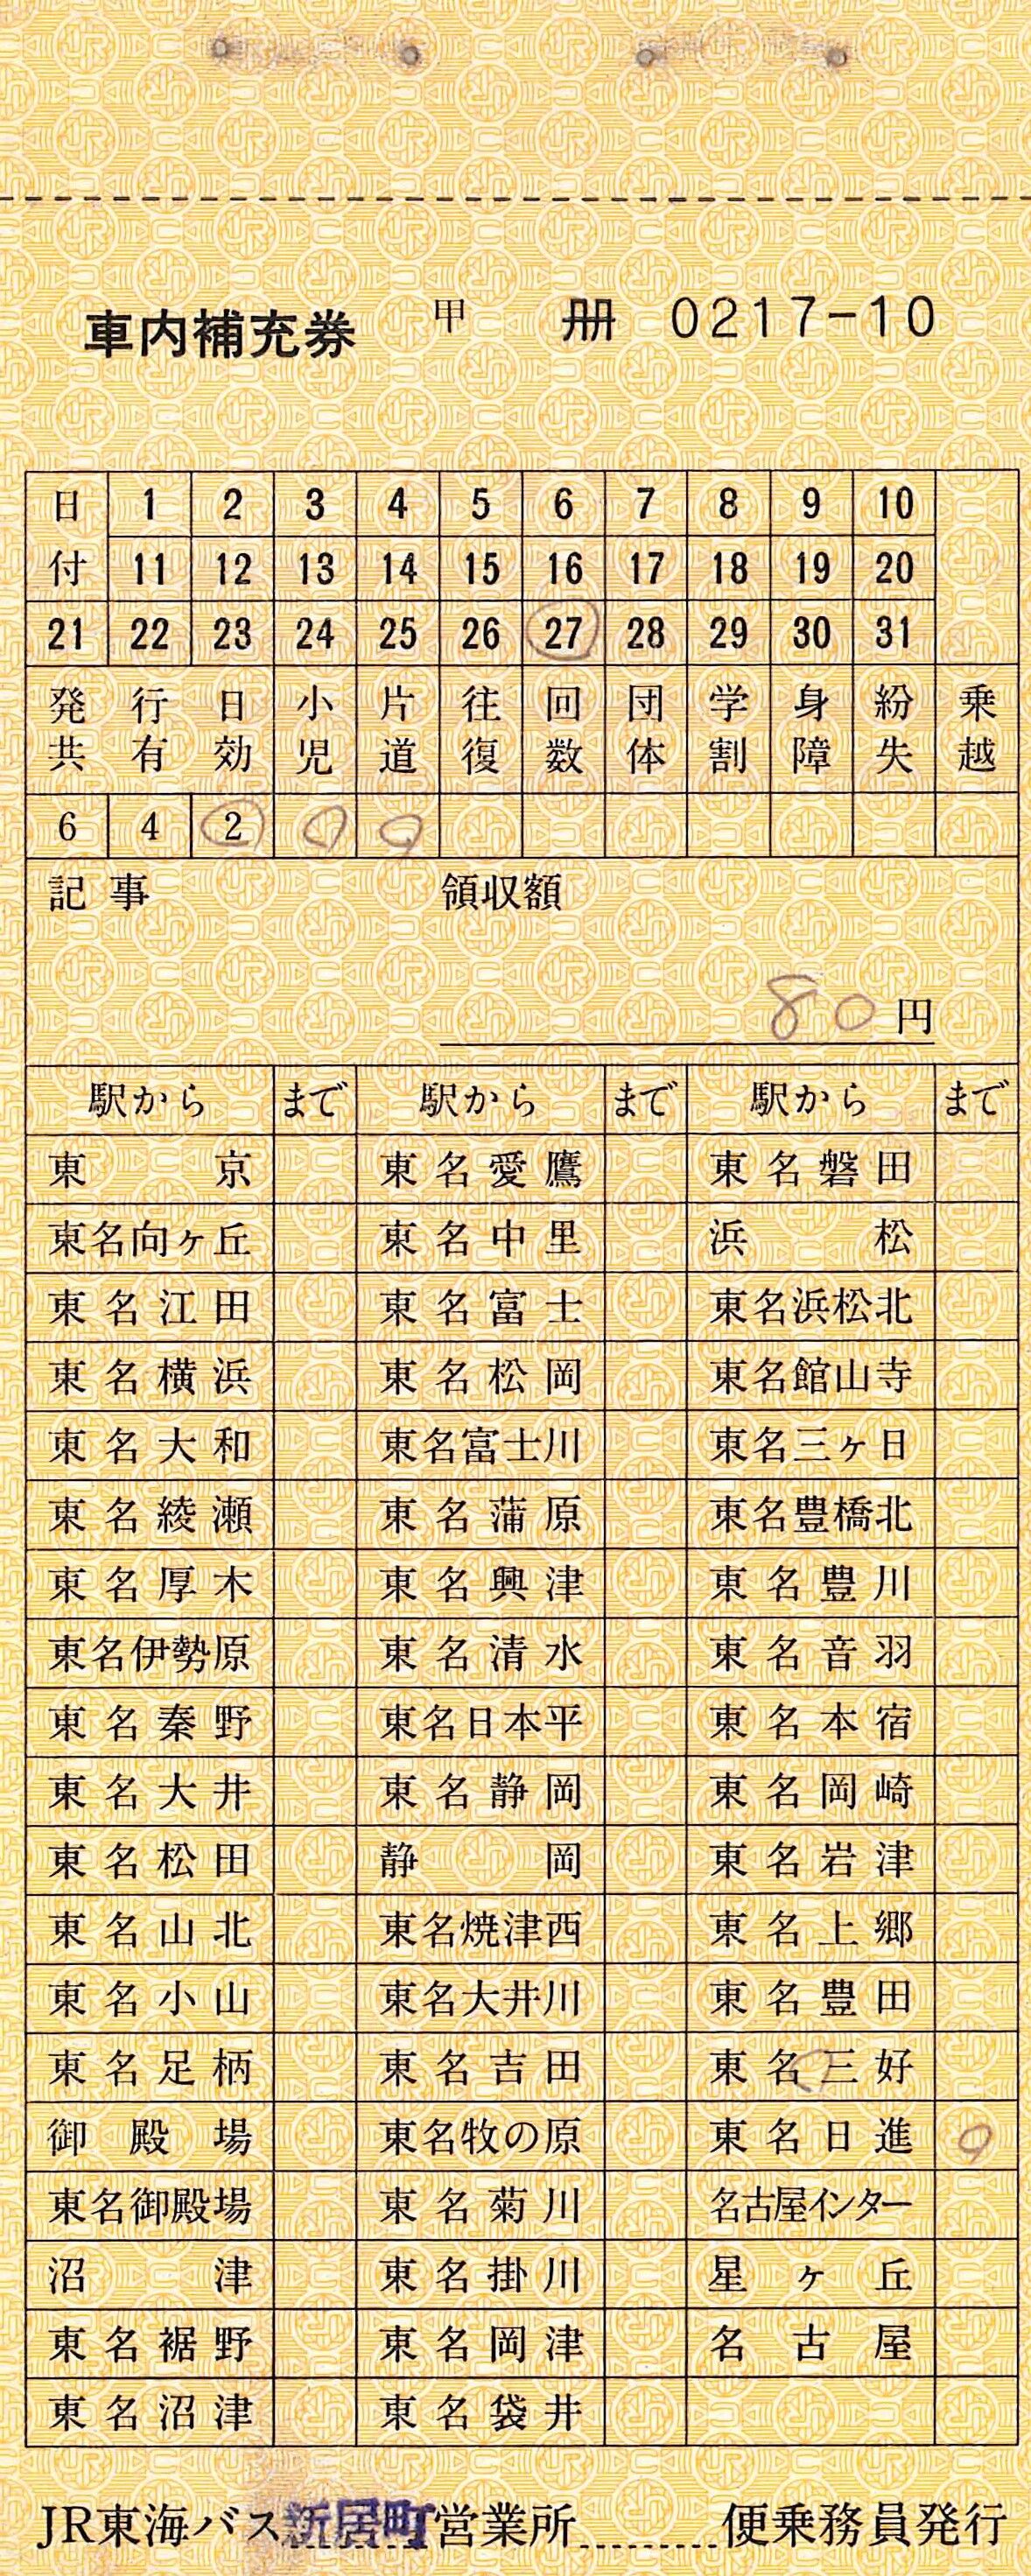 車内補充券 甲 冊 0217-10
日 1 2 3 4 5 6 7 8 9 10
付 11 12 13 14 15 16 17 18 19 20
21 22 23 24 25 26 27 28 29 30 31
発 行 日 小 片 往 回 団 学 身 紛 乗
共 有 効 児 道 復 数 体 割 障 失 越
6 4 2
記事 領収額
80円
駅から まで 駅から まで 駅から まで
東京 東名愛鷹 東名磐田
東名向ヶ丘 東名中里 浜松
東名江田 東名富士 東名浜松北
東名横浜 東名松岡 東名館山寺
東名大和 東名富士川 東名三ヶ日
東名綾瀬 東名蒲原 東名豊橋北
東名厚木 東名興津 東名豊川
東名伊勢原 東名清水 東名音羽
東名秦野 東名日本平 東名本宿
東名大井 東名静岡 東名岡崎
東名松田 静岡 東名岩津
東名山北 東名焼津西 東名上郷
東名小山 東名大井川 東名豊田
東名足柄 東名吉田 東名三好
御殿場 東名牧の原 東名日進
東名御殿場 東名菊川 名古屋インター
沼津 東名掛川 星ヶ丘
東名裾野 東名岡津 名古屋
東名沼津 東名袋井
JR東海バス新居町営業所........便乗務員発行